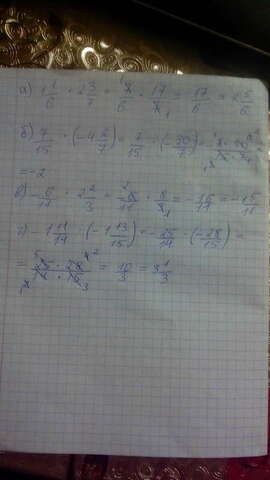 а) 1 1/6 · 2 3/7 = 7/6 · 17/7 = 17/6 = 2 5/6
б) 7/15 · (-4 2/7) = 7/15 · (-30/7) =
= -2
в) -6/11 · 2 2/3 = -6/11 · 8/3 = -16/11 = -1 5/11
г) -1 11/14 · (-1 13/15) = -25/14 · (-28/15) =
= 25 · 28 / 14 · 15 = 10/3 = 3 1/3